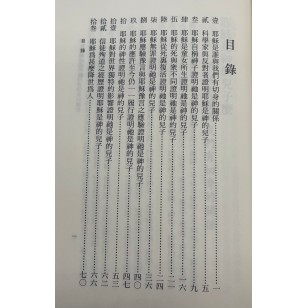 目錄
壹 耶穌是誰與我們有切身的關係……一
貳 科學家與反對者證明耶穌是神的兒子……五
叁 耶穌自稱神子證明祂是神的兒子……九
肆 耶穌是童女所生證明祂是神的兒子……一四
伍 耶穌的死與眾不同證明祂是神的兒子……一九
陸 耶穌從死裏復活證明祂是神的兒子……二六
柒 耶穌無罪證明祂是神的兒子……三六
捌 耶穌應驗預言與耶穌預言之應驗證明祂是神的兒子……四〇
玖 耶穌的應許至今仍一一履行證明祂是神的兒子……四四
拾 耶穌的神性證明祂是神的兒子……四七
拾壹 耶穌對世界獨特的影響證明祂是神的兒子……五三
拾貳 信徒殉道之經歷證明耶穌是神的兒子……六二
拾叁 耶穌為甚麼降世為人……六六
……七〇
目錄